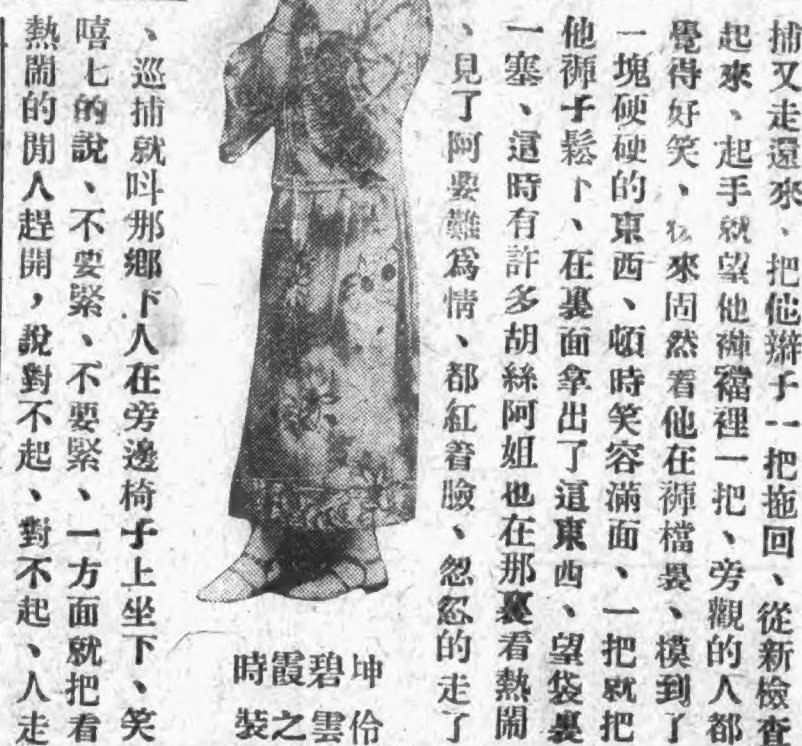 捕又走還來、把他辮子一把拖回、從新檢查
起來、起手就望他褲襠裡一把、旁觀的人都
覺得好笑、後來固然着他在褲檔裏、模到了
一塊硬硬的東西、頓時笑容滿面、一把就把
他褲子鬆下、在裏面拿出了這東西、望袋裏
一塞、這時有許多胡絲阿姐也在那裏看熱鬧
、見了阿要難爲情、都紅着臉、忽忽的走了
坤伶
碧雲
霞之
時裝
、巡捕就呌那鄉下人在旁邊椅子上坐下、笑
嘻七的說、不要緊、不要緊、一方面就把看
熱鬧的閒人趕開，說對不起、對不起、人走